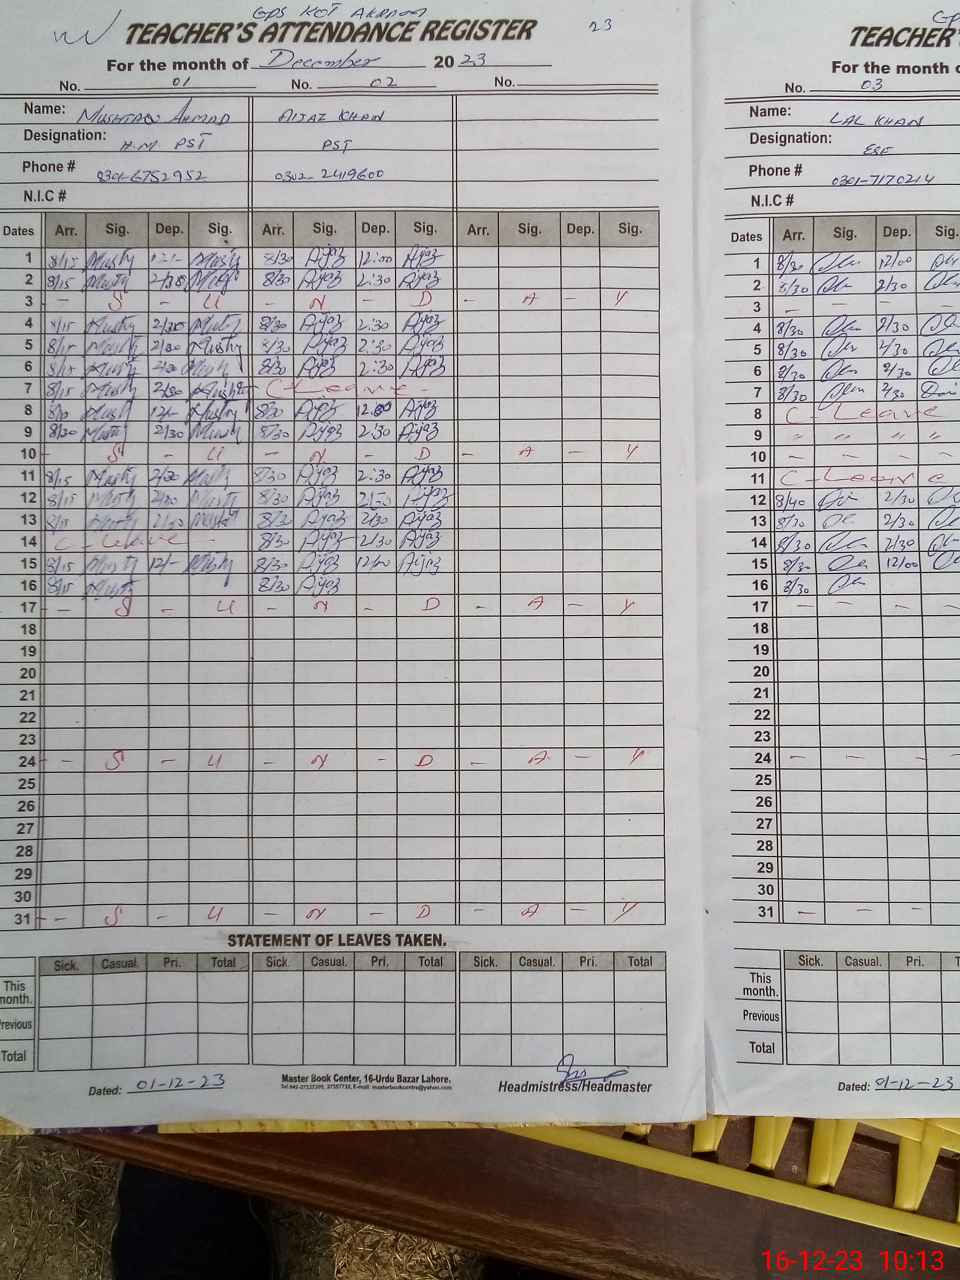 GPS KOT
TEACHER'S ATTENDANCE REGISTER 23
For the month of December 20 23
No. 01 No. 02 No.
Name: MUSHTAQ AHMAD AIJAZ KHAN
Designation: H.M PST PST
Phone # 0301-6752952 0302-2419600
N.I.C #
Dates Arr. Sig. Dep. Sig. Arr. Sig. Dep. Sig. Arr. Sig. Dep. Sig.
1 8/15 Mushty 12/- Mushty 8/30 Aijaz 12:00 Aijaz
2 8/15 Mushty 2/30 Mushty 8/30 Aijaz 2:30 Aijaz
3 - S - U - N - D - A - Y
4 8/15 Mushty 2/30 Mushty 8/30 Aijaz 2:30 Aijaz
5 8/15 Mushty 2/30 Mushty 8/30 Aijaz 2:30 Aijaz
6 8/15 Mushty 2/30 Mushty 8/30 Aijaz 2:30 Aijaz
7 8/15 Mushty 2/30 Mushty C-Leave -
8 Mushty 12/- Mushty 8/30 Aijaz 12:00 Aijaz
9 8/30 Mushty 2/30 Mushty 8/30 Aijaz 2:30 Aijaz
10 - S - U - N - D - A - Y
11 8/15 Mushty 2/30 Mushty 8/30 Aijaz 2:30 Aijaz
12 8/15 Mushty 2/30 Mushty 8/30 Aijaz 2:30 Aijaz
13 8/15 Mushty 2/30 Mushty 8/30 Aijaz 2/30 Aijaz
14 C-Leave - 8/30 Aijaz 2/30 Aijaz
15 8/15 Mushty 12/- Mushty 8/30 Aijaz 12/00 Aijaz
16 8/15 Mushty 8/30 Aijaz
17 - S - U - N - D - A - Y
18
19
20
21
22
23
24 - S - U - N - D - A - Y
25
26
27
28
29
30
31 - S - U - N - D - A - Y
STATEMENT OF LEAVES TAKEN.
Sick. Casual. Pri. Total Sick. Casual. Pri. Total Sick. Casual. Pri. Total
This month.
Previous
Total
Dated: 01-12-23
Master Book Center, 16-Urdu Bazar Lahore.
Headmistress/Headmaster
TEACHER'
For the month
No. 03
Name: LAL KHAN
Designation: ESE
Phone # 0301-7170214
N.I.C #
Dates Arr. Sig. Dep. Sig.
1 8/30 12/00
2 8/30 2/30
3 - - - -
4 8/30 2/30
5 8/30 2/30
6 8/30 2/30
7 8/30 2/30
8 C-Leave
9 " " " "
10 - - - -
11 C-Leave
12 8/40 2/30
13 8/30 2/30
14 8/30 2/30
15 8/30 12/00
16 8/30
17 - - - -
18
19
20
21
22
23
24 - - - -
25
26
27
28
29
30
31 - - - -
Sick. Casual. Pri.
This month.
Previous
Total
Dated: 01-12-23
16-12-23 10:13